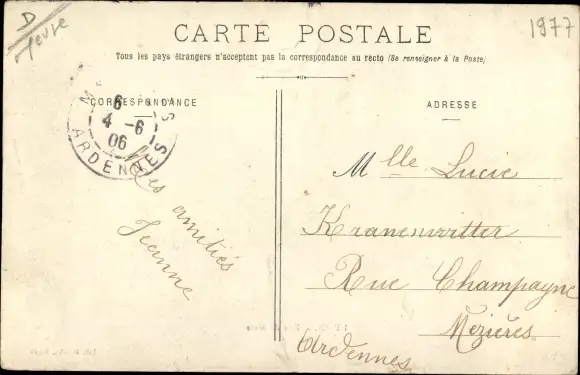 D
1977
CARTE POSTALE
Tous les pays étrangers n'acceptent pas la correspondance au recto (Se renseigner à la Poste)
CORRESPONDANCE
ADRESSE
6
4 -6
06
ARDENNES
Mes amitiés
Jeanne
Mlle. Lucie
Kranenwitter
Rue Champagne
Mézières
Ardennes